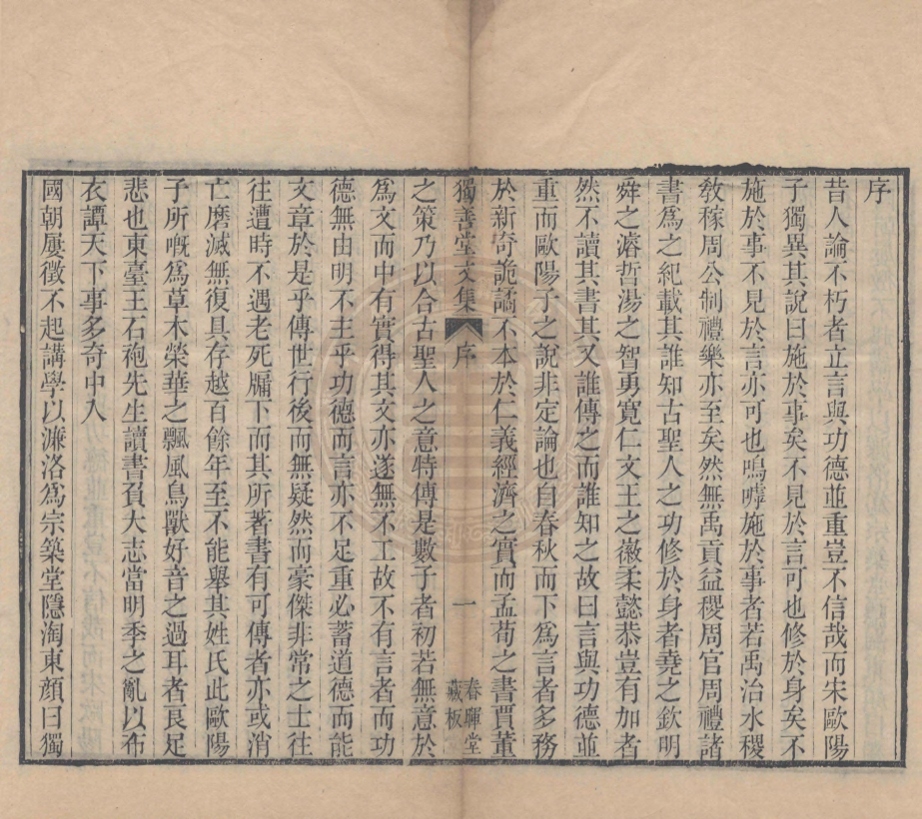 序
昔人論不朽者立言與功德並重豈不信哉而宋歐陽
子獨異其說曰施於事矣不見於言可也修於身矣不
施於事不見於言亦可也嗚嘑施於事者若禹治水稷
敎稼周公制禮樂亦至矣然無禹貢益稷周官周禮諸
書爲之紀載其誰知古聖人之功修於身者堯之欽明
舜之濬哲湯之智勇寬仁文王之徽柔懿恭豈有加者
然不讀其書其又誰傳之而誰知之故曰言與功德並
重而歐陽子之說非定論也自春秋而下爲言者多務
於新奇詭譎不本於仁義經濟之實而孟荀之書賈董
獨善堂文集 序 一 春暉堂
藏板
之策乃以合古聖人之意特傳是數子者初若無意於
爲文而中有實得其文亦遂無不工故不有言者而功
德無由明不主乎功德而言亦不足重必蓄道德而能
文章於是乎傳世行後而無疑然而豪傑非常之士往
往遭時不遇老死牖下而其所著書有可傳者亦或消
亡磨滅無復具存越百餘年至不能舉其姓氏此歐陽
子所嘅爲草木榮華之飄風鳥獸好音之過耳者良足
悲也東臺王石袍先生讀書負大志當明季之亂以布
衣譚天下事多奇中入
國朝屢徵不起講學以濂洛爲宗築堂隱淘東顏曰獨